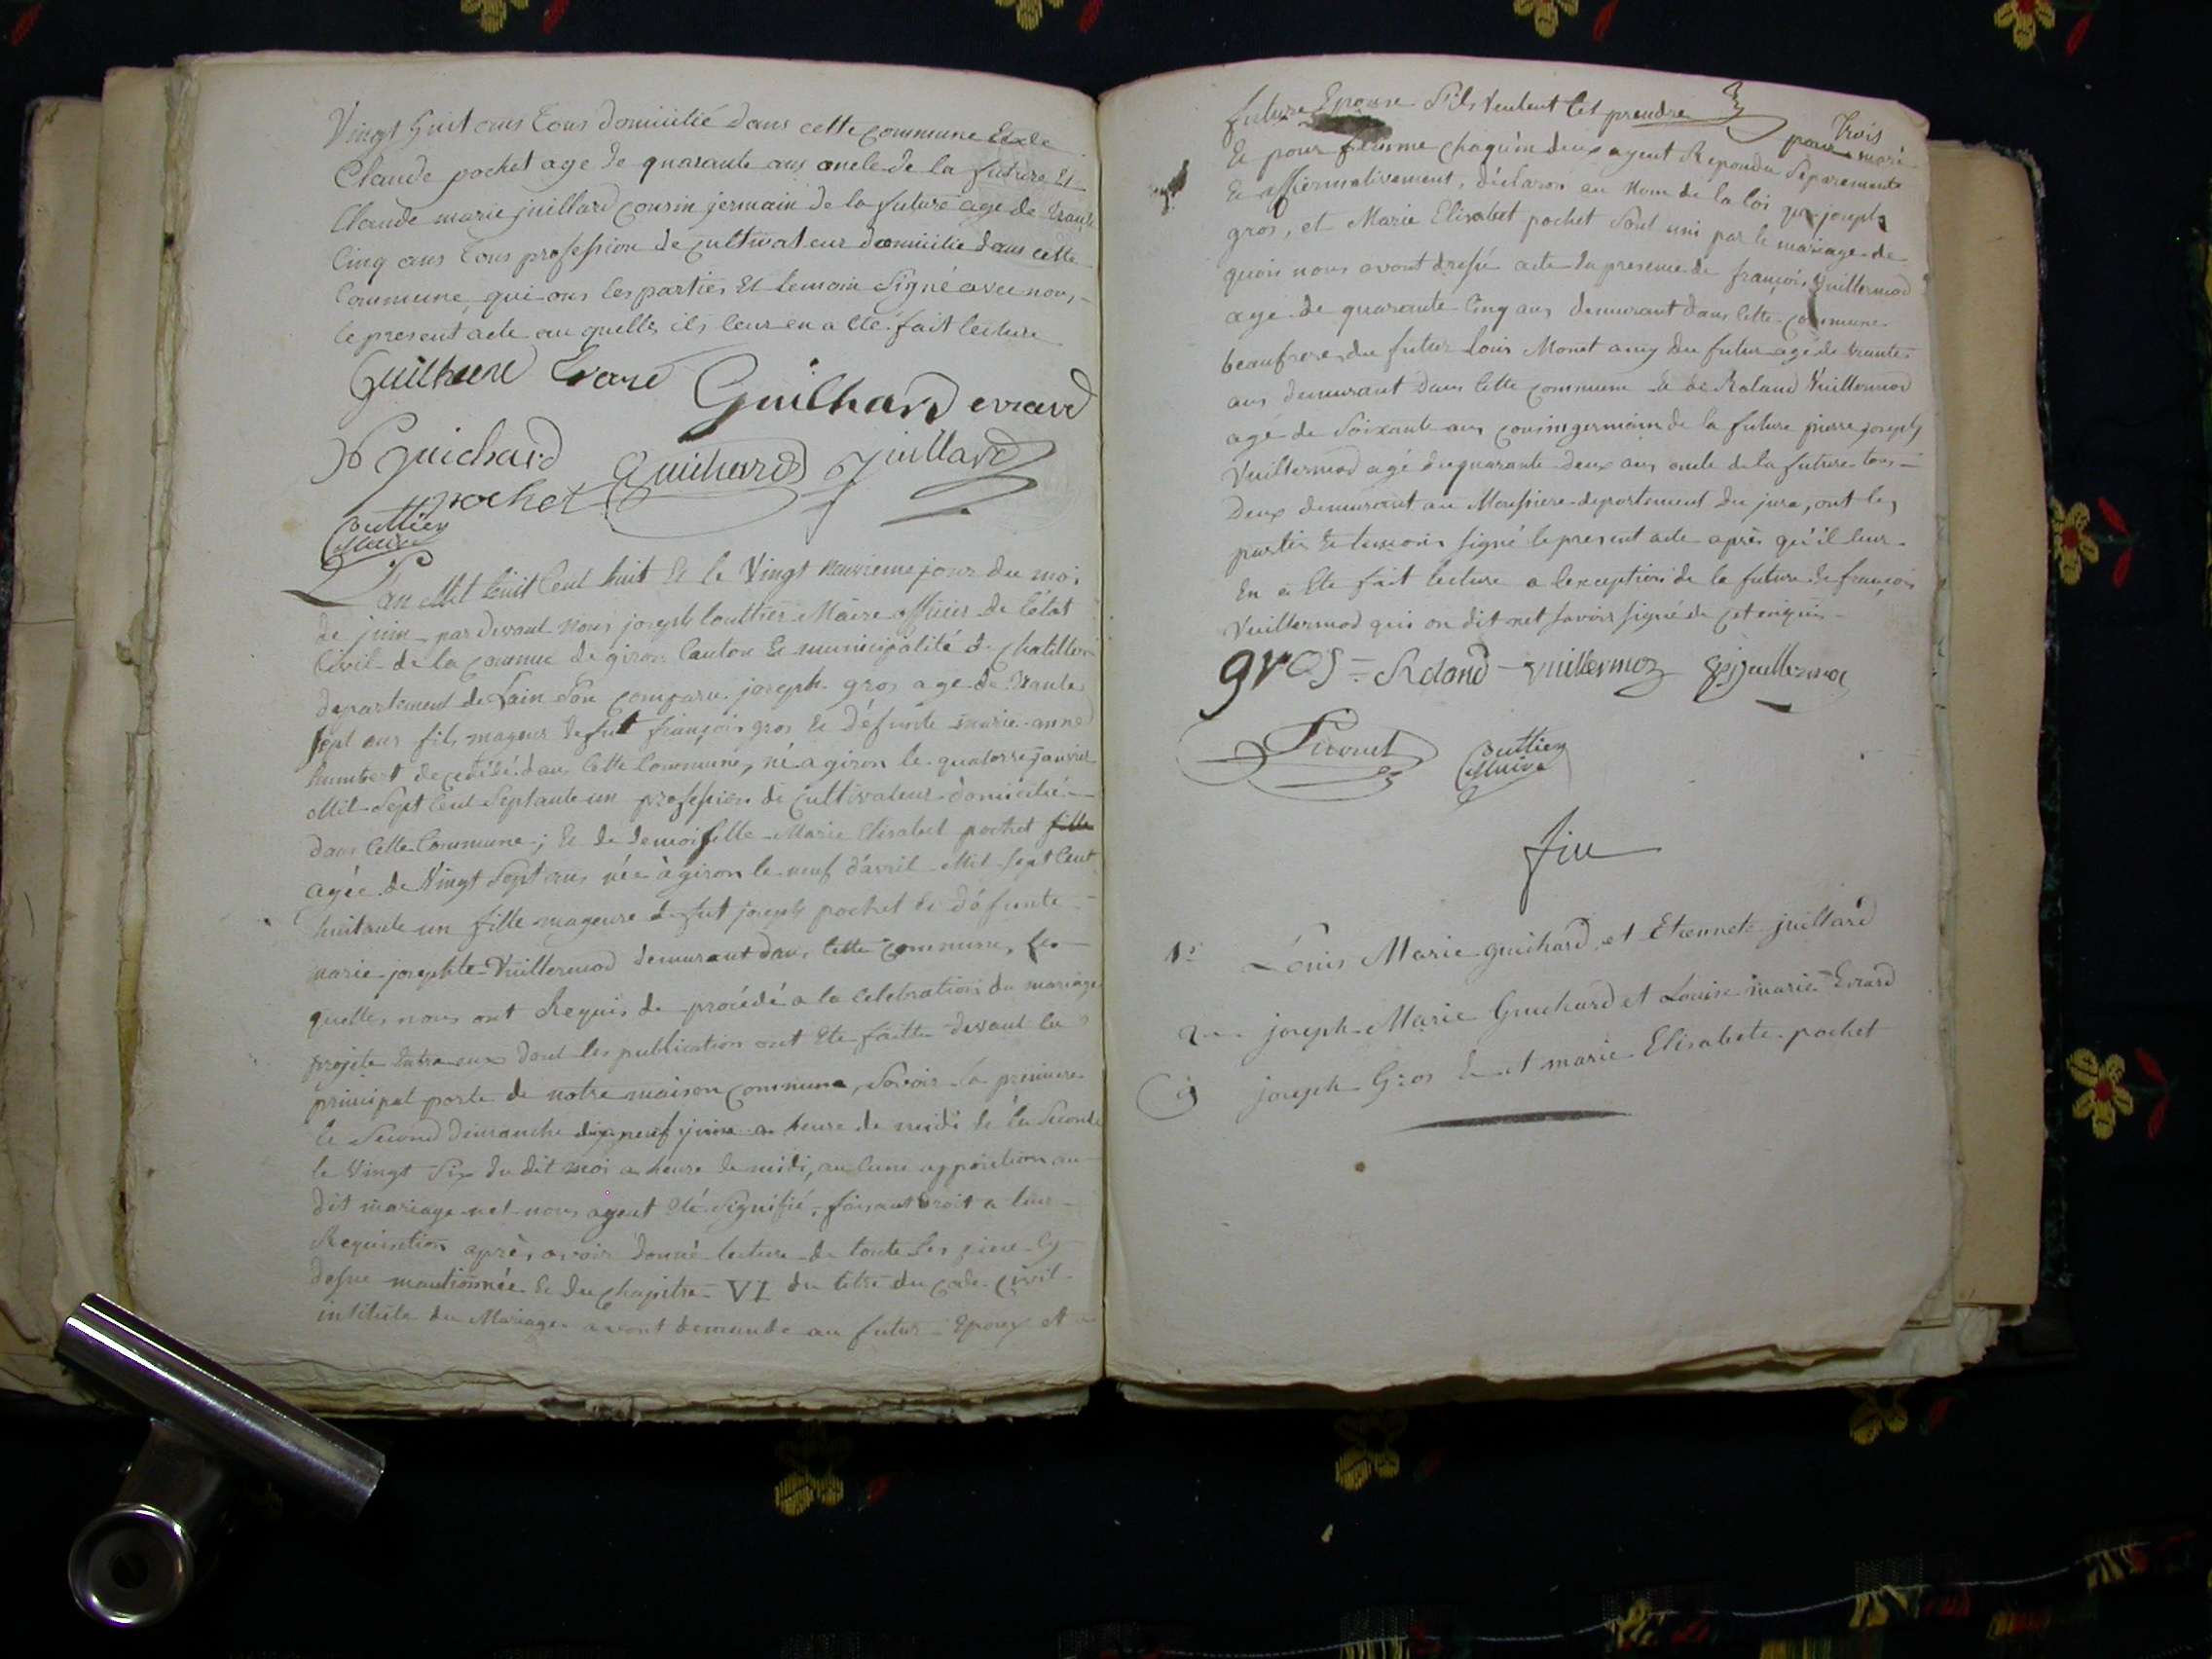 Vingt huit ans tous domicilié dans cette commune et de
Claude pochet age de quarante ans oncle de la future et
Claude marie juillard cousin jermain de la future age de trante
cinq ans tous profession de cultivateur domicilié dans cette
Commune, qui ons les parties et temoin signé avec nous,
le present acte au quelles ils leur en a eté fait lecture
Evard Guilhard evrard
Guichard Guihard Juillard
pochet
Outtier
Maire
L'an Mil huit Cent huit et le Vingt neuvieme jour du moi
de juin par devant nous joseph Outtier Maire officier de l'état
Civil de la comune de giron Canton et municipalité de Chatillon
departement de Lain son comparu joseph gros age de trante
sept ans fils mageur de fut françois gros et défunte marie anne
humbert décédé dans cette Commune, né a giron le quatorse janvier
Mil Sept Cent Septante un profession de cultivateur domicilié
dans cette Commune; et de demoiselle Marie Elisabet pochet fille
agée de Vingt Sept ans née à giron le neuf d'avril Mil Sept Cent
huitante un fille mageure de fut joseph pochet et défunte
marie josephte Vuillermod demurant dans cette commune, les
quelles nous ont Requis de procédé a la celebration du mariage
projete entre eux dont les publication ont eté faitte devant la
principal porte de notre maison commune, Savoir la premiere
le Second dimanche dix neuf juin a heure de midi et la Seconde
le Vingt Six du dit moi a heure de midi, au cune opposition au
dit mariage net nous ayent eté Signifié, faisant droit a leur
Requisition après avoir donné lecture de toute les piece cy
desue mantionnée et du chapitre VI du titre du code civil
intitulé du Mariage avont demande au futur Epoux et
future Epouse S'ils veulent Ces prendre pour mari
Trois
Et pour femme chaqu'un deux ayent Repondu Séparemente
Et affiermativement, déclaron au Nom de la loi que joseph
gros, et Marie Elisabet pochet Sont uni par le mariage de
quoi nous avont dressé acte en presence de françois Vuillermod
age de quarante Cinq ans demurant dans cette commune
beaufrere du futur Louis Monet amy du futur agé de trante
ans demurant dans cette commune et de Roland Vuillermod
agé de Soixante ans cousin germain de la future pierre joseph
Vuillermod agé de quarante deux ans oncle de la future tous
Deux demurant au Moussiere departement du jura, ont les
partis et temoin signé le present acte après qu'il leur
En a Ete fait lecture a lexception de la future et françois
Vuillermod qui on dit net savoir signé de cet enquis
gros = Roland Vuillermoz Vuillermoz
Outtier
Maire
fin
1º Louis Marie guichard et Etiennete juillard
2 joseph Marie Guichard et Louise marie Evrard
3 joseph Gros et marie Elisabete pochet